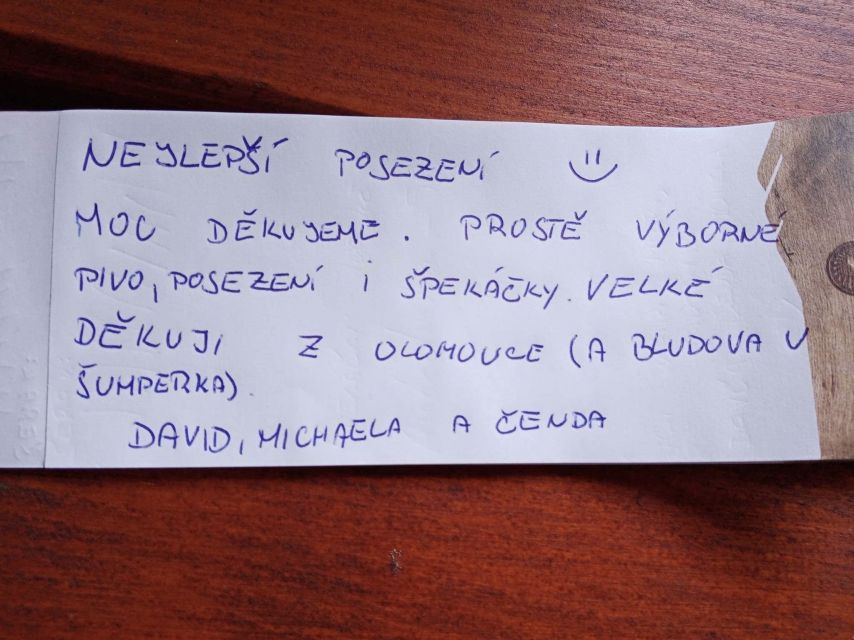 NEJLEPŠÍ POSEZENÍ
MOC DĚKUJEME. PROSTĚ VÝBORNÉ
PIVO, POSEZENÍ I ŠPEKÁČKY. VELKÉ
DĚKUJI Z OLOMOUCE (A BLUDOVA U
ŠUMPERKA).
DAVID, MICHAELA A ČENDA